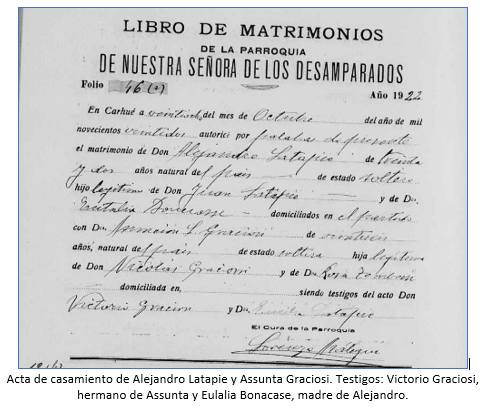 LIBRO DE MATRIMONIOS
DE LA PARROQUIA
DE NUESTRA SEÑORA DE LOS DESAMPARADOS
Folio 46 Año 1922
En Carhué a del mes de Octubre del año de mil
novecientos veintidos autoricé por palabra de presente
el matrimonio de Don Alejandro Latapie de treinta
y dos años natural del país de estado soltero
hijo legítimo de Don Juan Latapie y de Da.
Eulalia domiciliados en el partido
con Da. Asunción L. Graciosi de
años, natural del país de estado soltera hija legítima
de Don Nicolás Graciosi y de Da. Rosa
domiciliada en, siendo testigos del acto Don
Victorio Graciosi y Da. Latapie
El Cura de la Parroquia
Lorenzo
Acta de casamiento de Alejandro Latapie y Assunta Graciosi. Testigos: Victorio Graciosi,
hermano de Assunta y Eulalia Bonacase, madre de Alejandro.